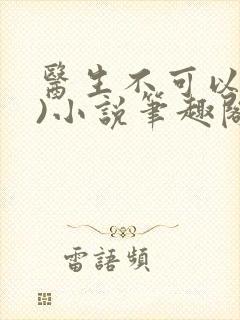 醫生不可以
)小說筆趣閣
雷語頻